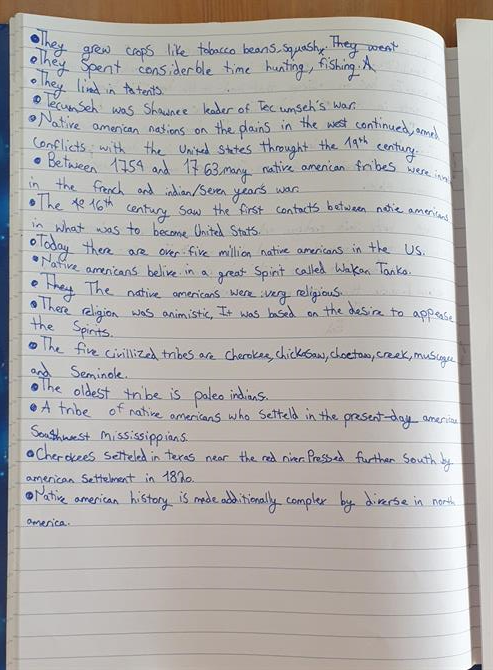 •They grew crops like tobacco beans, squash, They went
•They Spent considerble time hunting, fishing. A
•They lived in tatents.
•Tecumseh was Shawnee leader of Tecumseh's war.
•Native american nations on the plains in the west continued, armed
conflicts with the United States throught the 19th century.
•Between 1754 and 1763, many native american tribes were
in the french and indian/Seven years war.
•The 16th century saw the first contacts between natie americans
in what was to become United Stats.
•Today there are over five million native americans in the US.
•Native americans belive in a great Spirit called Wakan Tanka.
•They The native americans were very religious.
•There religion was animistic, It was based on the desire to appease
the Spirits.
•The five civillized tribes are Cherokee, chickosaw, choctaw, creek, muscogee
and Seminole.
•The oldest tribe is paleo indians.
•A tribe of native americans who setteld in the present-day american
Southwest Mississippians.
•Cherokees setteled in texas near the red river. Pressed further South by
american settelment in 1820.
•Native american history is made additionally complex by diverse in north
america.